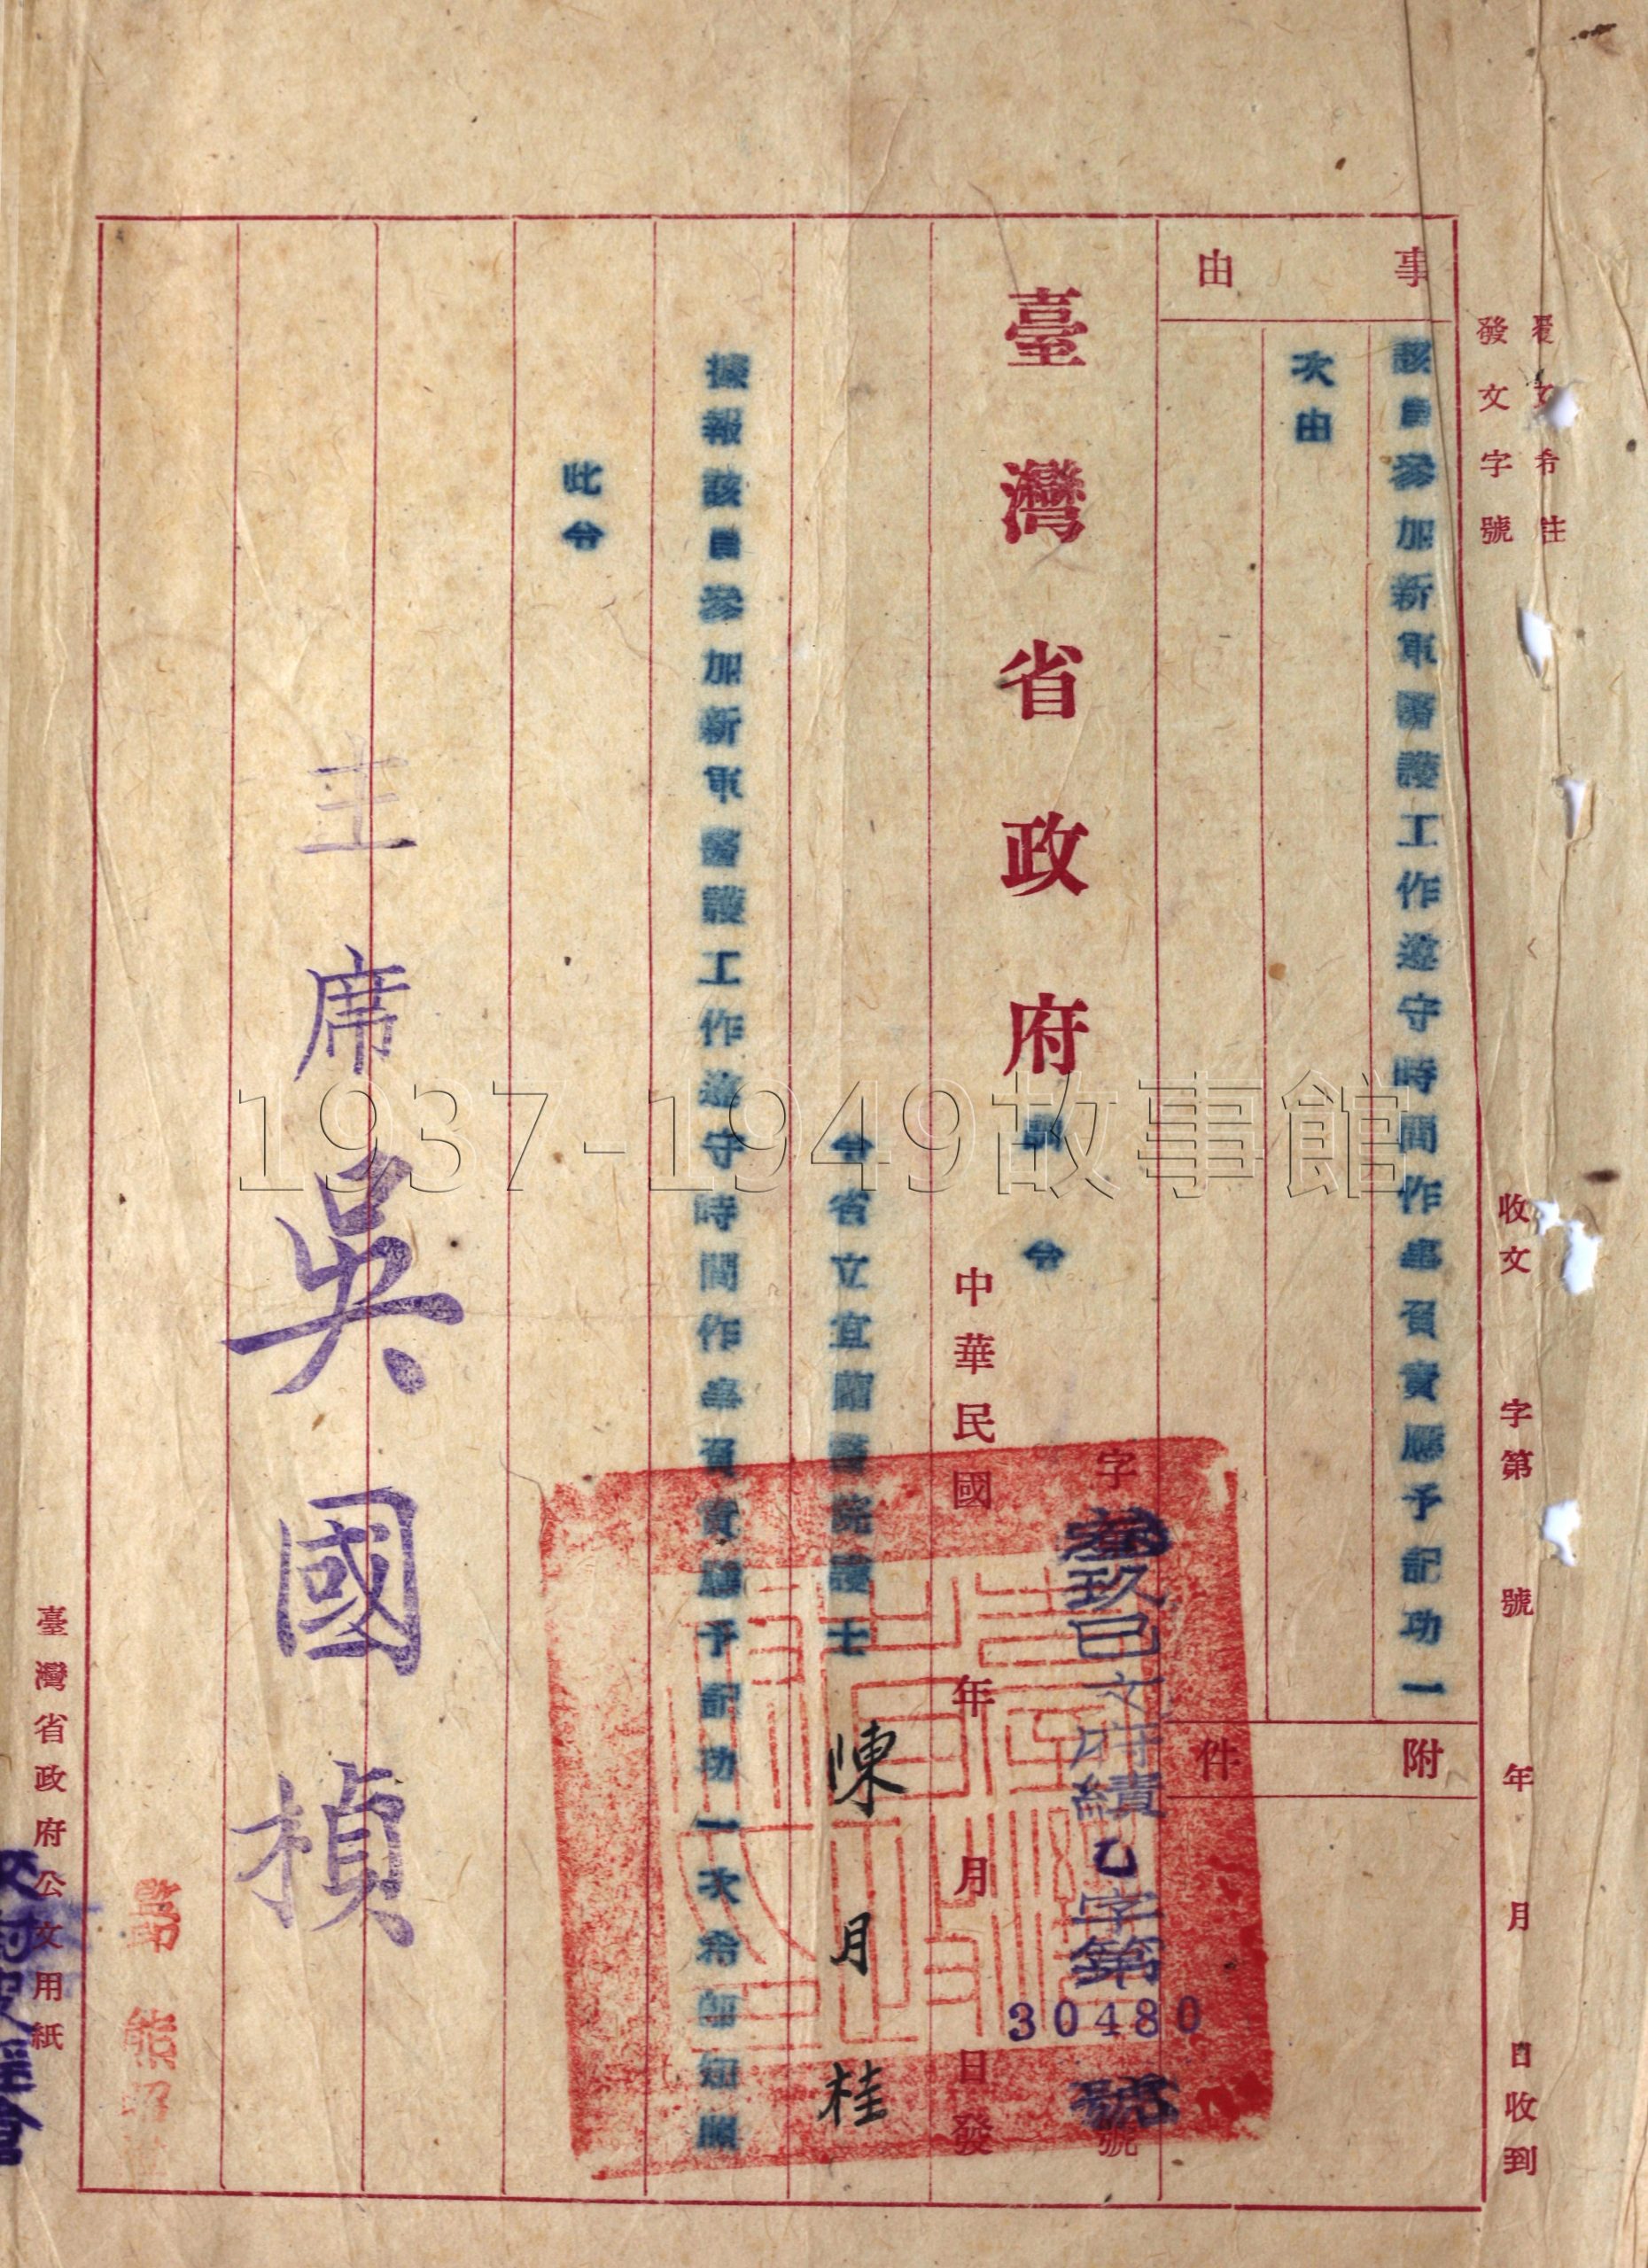 覆文希註
發文字號
收文 字第 號 年 月 日收到
事由
該員參加新軍醫護工作遵守時間作事負責應予記功一
次由
附件
臺灣省政府訓令
字 號
叁玖巳文府績乙字第30480號
中華民國 年 月 日發
令省立宜蘭醫院護士 陳月桂
據報該員參加新軍醫護工作遵守時間作事負責應予記功一次希即知照
此令
主席吳國楨
臺灣省政府公文用紙
1937-1949故事館